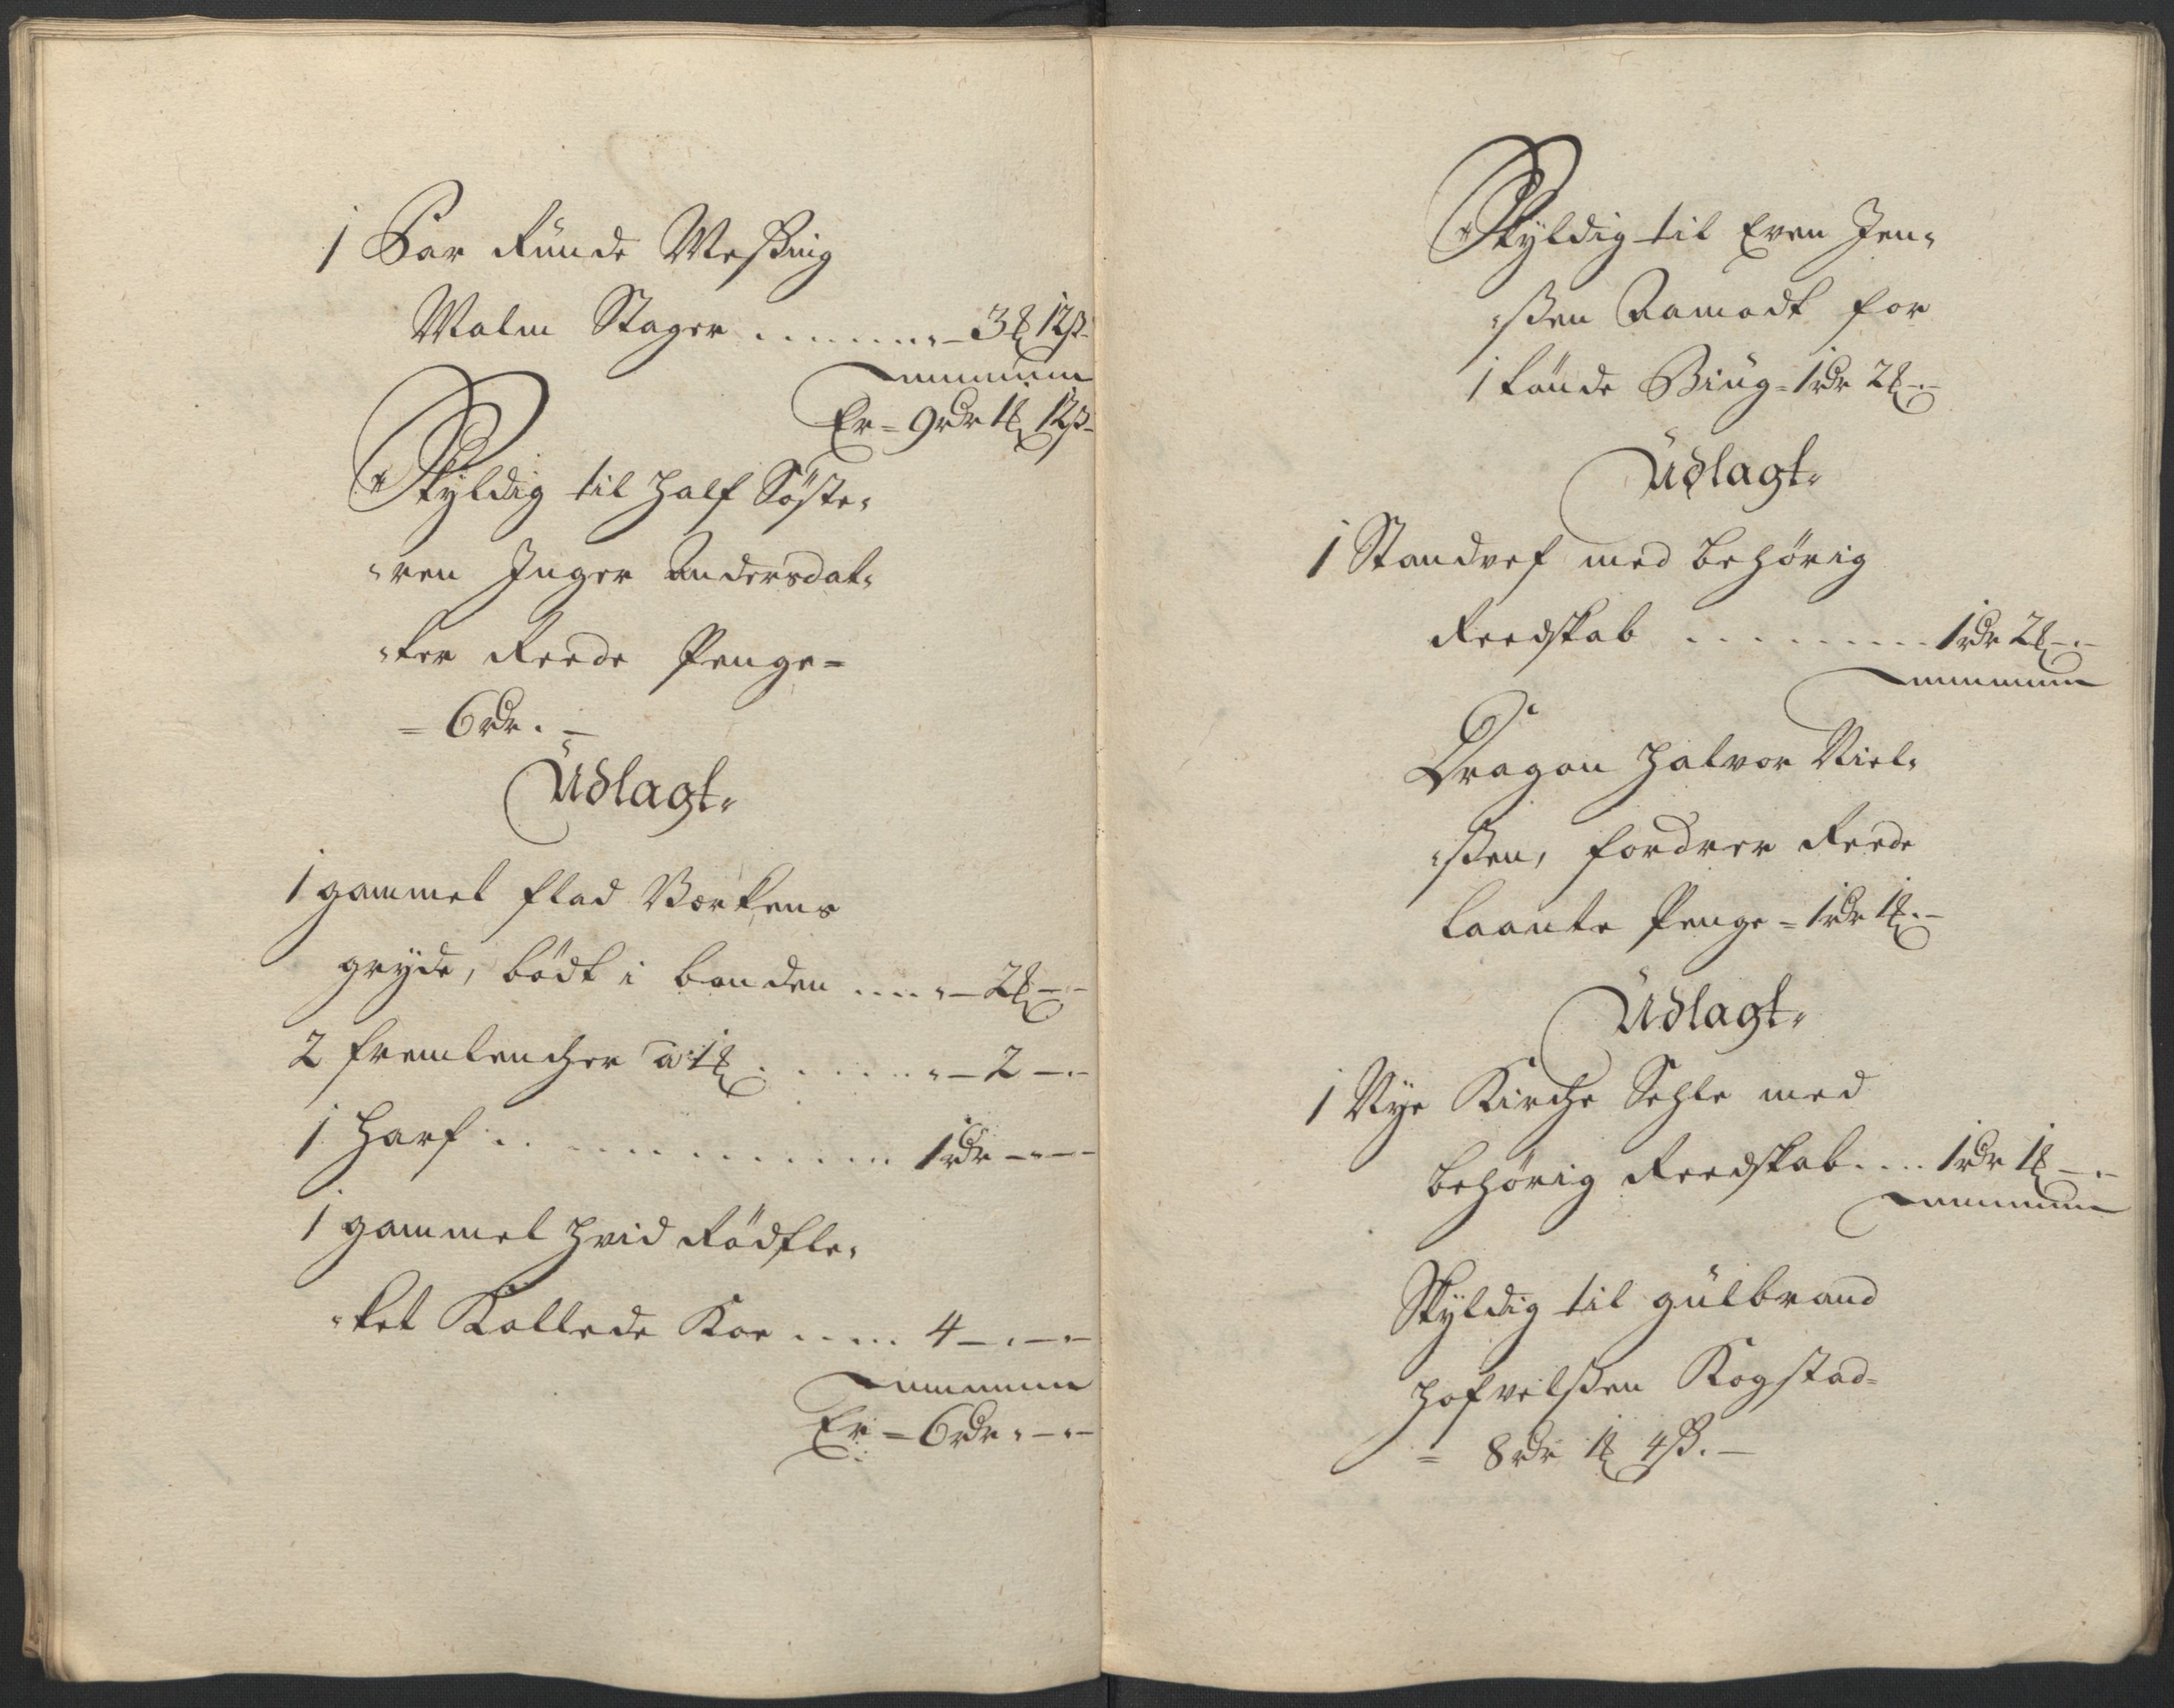 1 Par Runde Messing
Malm Stager ......... „ – 3 ℔ 12 ß
Er = 9 rdr 1 ℔ 12 ß
Skyldig til Half Söste„
„ren Inger Andersdat„
„ter Reede Penge =
= 6 rdr. –
Üdlagt„
1 gammel flad
gryde, bödt i bonden .... „ – 2 ℔ – „ –
2 fremlencher à 1 ℔ . . . . . . „ – 2 – „ –
1 Harf . . . . . . . . . . . . . 1 rdr – „ – „ –
1 gammel Hvid Rödfle„
„ket Kollede Koe ..... 4 – „ – „ –
Er = 6 rdr „ – „ –
Skyldig til Even Jen„
„ßen Aamodt for
1 tünde Biüg = 1 rdr 2 ℔ – „ –
Üdlagt„
1 Standvef med behörig
Reedskab . . . . . . . . . 1 rdr 2 ℔ – „ –
Dragon Halvor Niel„
„ßen, fordrer Reede
laante Penge = 1 rdr 1 ℔ „ –
Üdlagt„
1 Nye Kirche Sehle med
behörig Reedskab .... 1 rdr 1 ℔ – „ –
Skyldig til gülbrand
Hofvelßen Kogstad =
= 8 rdr 1 ℔ 4 ß. –